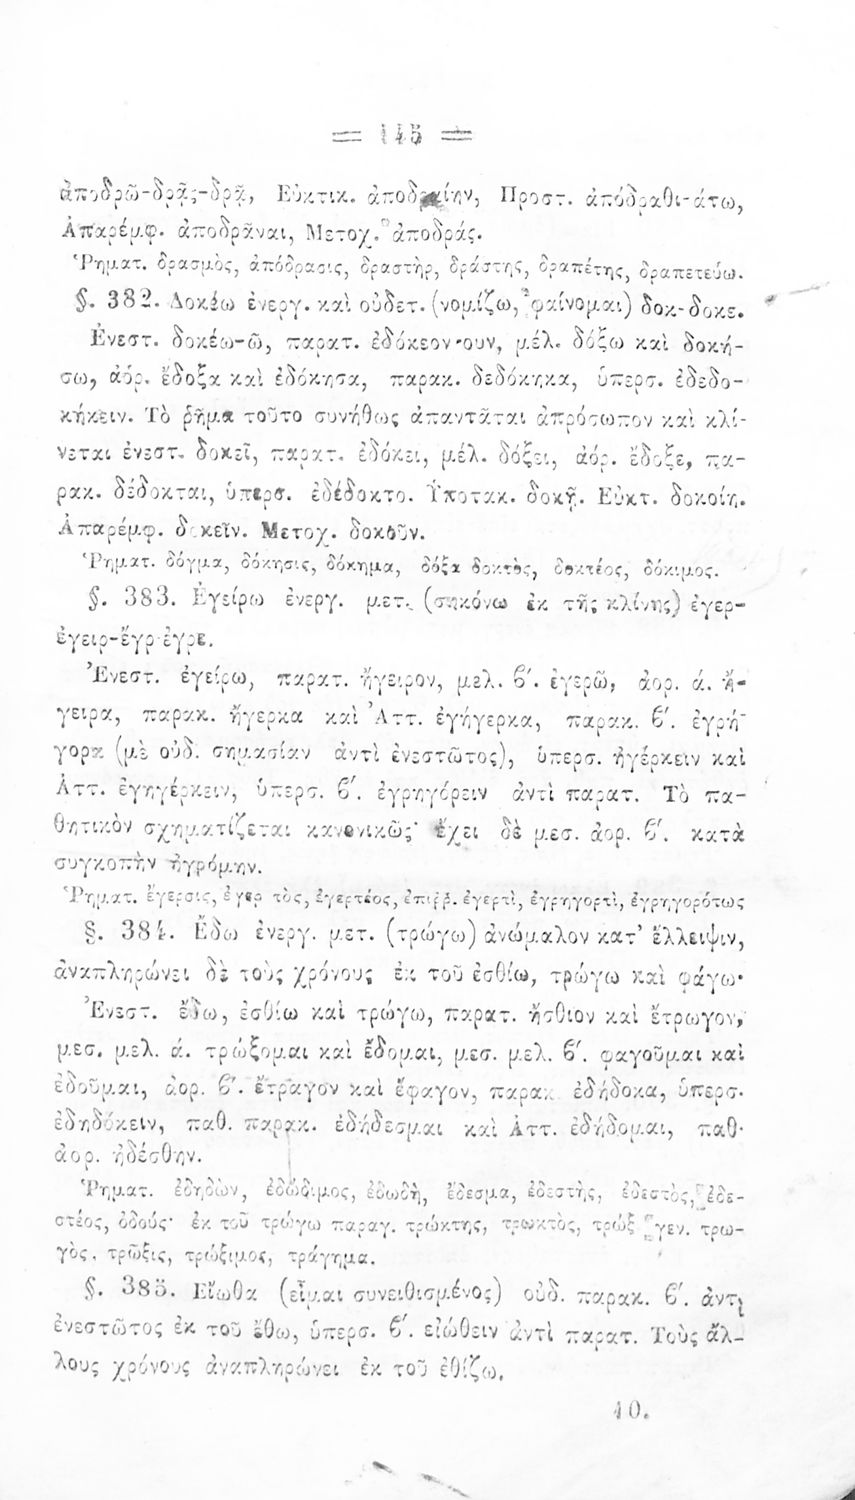 = 145 =
ἀποδρῶ-δρᾷς-δρᾷ, Εὐκτικ. ἀποδραίην, Προστ. ἀπόδραθι-άτω,
Ἀπαρέμφ. ἀποδρᾶναι, Μετοχ. ἀποδράς.
Ῥηματ. δρασμὸς, ἀπόδρασις, δραστὴρ, δράστης, δραπέτης, δραπετεύω.
§. 382. Δοκέω ἐνεργ. καὶ οὐδετ. (νομίζω, φαίνομαι) δοκ-δοκε.
Ἐνεστ. δοκέω-ῶ, παρατ. ἐδόκεον-ουν, μέλ. δόξω καὶ δοκή-
σω, ἀόρ. ἔδοξα καὶ ἐδόκησα, παρακ. δεδόκηκα, ὑπερσ. ἐδεδο-
κήκειν. Τὸ ῥῆμα τοῦτο συνήθως ἀπαντᾶται ἀπρόσωπον καὶ κλί-
νεται ἐνεστ. δοκεῖ, παρατ. ἐδόκει, μέλ. δόξει, ἀόρ. ἔδοξε, πα-
ρακ. δέδοκται, ὑπερσ. ἐδέδοκτο. Ὑποτακ. δοκῇ. Εὐκτ. δοκοίη.
Ἀπαρέμφ. δοκεῖν. Μετοχ. δοκοῦν.
Ῥηματ. δόγμα, δόκησις, δόκημα, δόξα δοκτὸς, δοκτέος, δόκιμος.
§. 383. Ἐγείρω ἐνεργ. μετ. (σηκόνω ἐκ τῆς κλίνης) ἐγερ-
ἐγειρ-ἐγρ-ἐγρε.
Ἐνεστ. ἐγείρω, παρατ. ἤγειρον, μελ. β'. ἐγερῶ, ἀορ. ά. ἤ-
γειρα, παρακ. ἤγερκα καὶ Ἀττ. ἐγήγερκα, παρακ. β'. ἐγρή-
γορα (μὲ οὐδ. σημασίαν ἀντὶ ἐνεστῶτος), ὑπερσ. ἠγέρκειν καὶ
Ἀττ. ἐγηγέρκειν, ὑπερσ. β'. ἐγρηγόρειν ἀντὶ παρατ. Τὸ πα-
θητικὸν σχηματίζεται κανονικῶς· ἔχει δὲ μεσ. ἀορ. β'. κατὰ
συγκοπὴν ἠγρόμην.
Ῥηματ. ἔγερσις, ἐγερτὸς, ἐγερτέος, ἐπιρρ. ἐγερτὶ, ἐγρηγορτὶ, ἐγρηγορότως
§. 384. Ἔδω ἐνεργ. μετ. (τρώγω) ἀνώμαλον κατ' ἔλλειψιν,
ἀναπληρώνει δὲ τοὺς χρόνους ἐκ τοῦ ἐσθίω, τρώγω καὶ φάγω·
Ἐνεστ. ἔδω, ἐσθίω καὶ τρώγω, παρατ. ἤσθιον καὶ ἔτρωγον,
μεσ. μελ. ά. τρώξομαι καὶ ἔδομαι, μεσ. μελ. β'. φαγοῦμαι καὶ
ἐδοῦμαι, ἀορ. β'. ἔτραγον καὶ ἔφαγον, παρακ. ἐδήδοκα, ὑπερσ.
ἐδηδόκειν, παθ. παρακ. ἐδήδεσμαι καὶ Ἀττ. ἐδήδομαι, παθ·
ἀορ. ἠδέσθην.
Ῥηματ. ἐδηδὼν, ἐδώδιμος, ἐδωδὴ, ἔδεσμα, ἐδεστὴς, ἐδεστὸς, ἐδε-
στέος, ὀδούς· ἐκ τοῦ τρώγω παραγ. τρώκτης, τρωκτὸς, τρώξ γεν. τρω-
γὸς, τρῶξις, τρώξιμος, τράγημα.
§. 385. Εἴωθα (εἶμαι συνειθισμένος) οὐδ. παρακ. β'. ἀντὶ
ἐνεστῶτος ἐκ τοῦ ἔθω, ὑπερσ. β'. εἰώθειν ἀντὶ παρατ. Τοὺς ἄλ-
λους χρόνους ἀναπληρώνει ἐκ τοῦ ἐθίζω.
10.